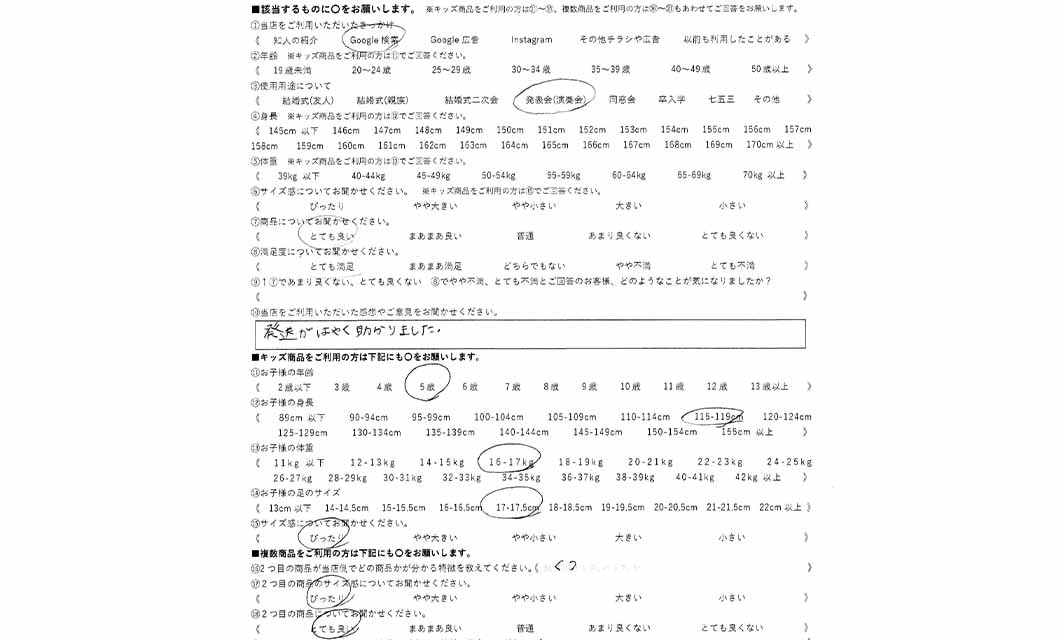 ■該当するものに〇をお願いします。 ※キッズ商品をご利用の方は⑪～⑮、複数商品をご利用の方は⑯～⑳もあわせてご回答をお願いします。
①当店をご利用いただいたきっかけ
《 知人の紹介 Google 検索 Google 広告 Instagram その他チラシや広告 以前も利用したことがある 》
②年齢 ※キッズ商品をご利用の方は⑪でご回答ください。
《 19歳未満 20～24歳 25～29歳 30～34歳 35～39歳 40～49歳 50歳以上 》
③使用用途について
《 結婚式(友人) 結婚式(親族) 結婚式二次会 発表会(演奏会) 同窓会 卒入学 七五三 その他 》
④身長 ※キッズ商品をご利用の方は⑫でご回答ください。
《 145cm 以下 146cm 147cm 148cm 149cm 150cm 151cm 152cm 153cm 154cm 155cm 156cm 157cm
158cm 159cm 160cm 161cm 162cm 163cm 164cm 165cm 166cm 167cm 168cm 169cm 170cm以上 》
⑤体重 ※キッズ商品をご利用の方は⑬でご回答ください。
《 39kg 以下 40-44kg 45-49kg 50-54kg 55-59kg 60-64kg 65-69kg 70kg 以上 》
⑥サイズ感についてお聞かせください。 ※キッズ商品をご利用の方は⑮でご回答ください。
《 ぴったり やや大きい やや小さい 大きい 小さい 》
⑦商品についてお聞かせください。
《 とても良い まあまあ良い 普通 あまり良くない とても良くない 》
⑧満足度についてお聞かせください。
《 とても満足 まあまあ満足 どちらでもない やや不満 とても不満 》
⑨1⑦であまり良くない、とても良くない ⑧でやや不満、とても不満とご回答のお客様、どのようなことが気になりましたか？
《 》
⑩当店をご利用いただいた感想やご意見をお聞かせください。
発送がはやく助かりました.
■キッズ商品をご利用の方は下記にも〇をお願いします。
⑪お子様の年齢
《 2歳以下 3歳 4歳 5歳 6歳 7歳 8歳 9歳 10歳 11歳 12歳 13歳以上 》
⑫お子様の身長
《 89cm 以下 90-94cm 95-99cm 100-104cm 105-109cm 110-114cm 115-119cm 120-124cm
125-129cm 130-134cm 135-139cm 140-144cm 145-149cm 150-154cm 155cm 以上 》
⑬お子様の体重
《 11kg 以下 12-13kg 14-15kg 16-17kg 18-19kg 20-21kg 22-23kg 24-25kg
26-27kg 28-29kg 30-31kg 32-33kg 34-35kg 36-37kg 38-39kg 40-41kg 42kg以上 》
⑭お子様の足のサイズ
《 13cm以下 14-14.5cm 15-15.5cm 16-16.5cm 17-17.5cm 18-18.5cm 19-19.5cm 20-20.5cm 21-21.5cm 22cm以上 》
⑮サイズ感についてお聞かせください。
《 ぴったり やや大きい やや小さい 大きい 小さい 》
■複数商品をご利用の方は下記にも〇をお願いします。
⑯2つ目の商品が当店側でどの商品かが分かる特徴を教えてください。《 くつ 》
⑰2つ目の商品のサイズ感についてお聞かせください。
《 ぴったり やや大きい やや小さい 大きい 小さい 》
⑱2つ目の商品についてお聞かせください。
《 とても良い まあまあ良い 普通 あまり良くない とても良くない 》